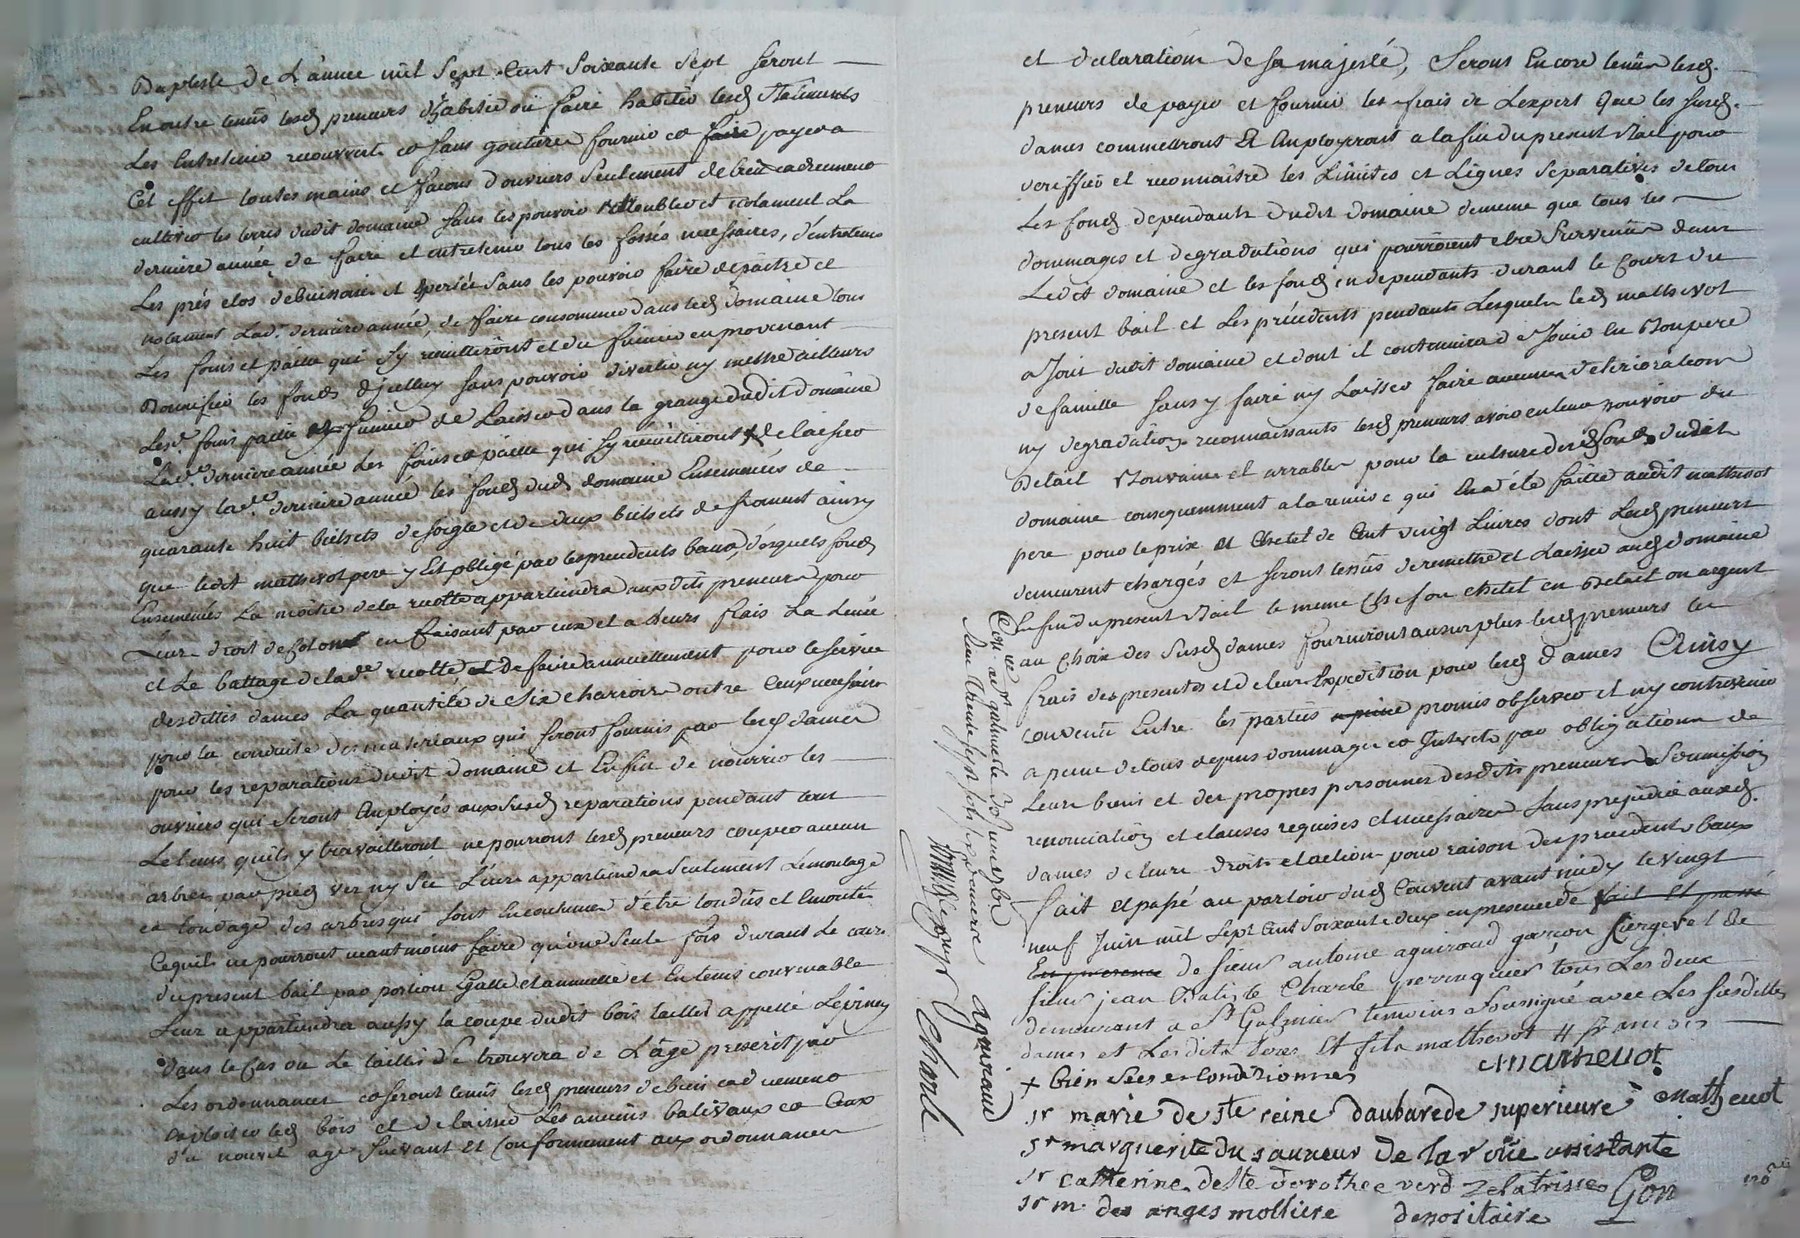 Baptiste de L'année mil Sept Cent Soixante Sept Seront
En outre tenus lesd preneurs d'habiter ou faire habiter lesd Batiments
Les Entretenir recouverts et sans goutiere fournir et faire payer a
Cet effet toutes mains et façons d'ouvriers Seulement de bien cadrement
cultiver les terres dudit domaine sans les pouvoir retroubler et notament La
derniere année, de faire et entretenir tous les fossés necessaires, d'entretenir
Les prés clos de buissons et sans les pouvoir faire depaitre et
notament Lad. derniere année, de faire consommer dans led domaine tous
Les foins et paille qui s'y cueilliront et du fumier en provenant
Bonnifier les fonds d'jcelluy sans pouvoir divertir ny mettre ailleurs
Lesd. foins paille fumier de Laisser dans la grange dudit domaine
Lad.e derniere année les foins et paille qui s'y recueilliront + de laisser
aussy lad.e derniere année les fonds dud domaine Ensemencés de
quarante huit bichets de soigle et de deux bichets de froment ainsy
que ledit mathevot pere y Est obligé par les precedents baux, desquels fonds
Ensemencés La moitié de la recolte appartiendra auxdits preneurs pour
Leur droit de Colon en faisant par eux et a leurs frais La Levée
et Le battage de lad.e recolte et de faire annuellement pour le service
desdittes dames La quantité de Six charrois outre Ceux necessaires
pour la conduite des materiaux qui seront fournis par lesd dames
pour les reparations dudit domaine et Enfin de nourrir les
ouvriers qui Seront Employés auxsusd reparations pendant tout
Le tems qu'ils y travailleront ne pourront lesd preneurs couper aucun
arbres par pied ver ny Sec Leur appartiendra Seulement L'emoudage
et tondage des arbres qui sont En coutume d'être tondus et Emondés
Cequils ne pourront neantmoins faire qu'une Seule fois durant le cours
du present bail par portion Egalle et annuelle et En tems convenable
Leur appartiendra aussy la coupe dudit bois taillis appellé Lepinay
dans le cas ou Le taillis Se trouvera de L'age prescrit par
Les ordonnances et seront tenus lesd preneurs de bien caduement
exploiter led bois et de laisser Les anciens balivaux et Ceux
du nouvel age Suivant et Conformement aux ordonnances
et declarations de Sa majesté, Seront Encore tenus lesd.
preneurs de payer et fournir les frais de L'expert Que les susd.
dames commettront Et Employeront a la fin du present Bail pour
veriffier et reconnaitre les Limites et Lignes Separatives de tous
Les fonds dependants dudit domaine de meme que tous les
dommages et degradations qui pourroient etre Survenus dans
Ledit domaine et les fonds en dependants durant le Cours du
present bail et les précédents pendants Lesquels led mathevot
a Joui dudit domaine et dont il continuera de Jouir En Bon pere
de famille sans y faire ny Laisser faire aucunes deterioration
ny degradations reconnaissants lesd preneurs avoir en leur pouvoir du
Betail Bouvaine et arrables pour la culture desd fonds dudit
domaine consequemment a la remise qui En a été faitte audit mathevot
pere pour le prix et Chetel de Cent vingt Livres dont Lesd preneurs
demeurent chargés et Seront tenus de remettre et Laisser aud domaine
La fin du present Bail le meme chetel en Betail ou argent
au Choix des Susd dames fourniront au surplus lesd preneurs les
frais des presentes et de leur Expedition pour lesd dames Ainsy
convenu Entre les parties promis observer et ny contrevenir
a peine de tous depens dommages et Interets par obligations de
Leurs biens et des propres personnes desdits preneurs Soumissions
renonciations et clauses requises et necessaires Sans prejudice auxd.
dames de leurs droits et action pour raison des precedents baux
fait et passé au parloir dud Couvent avant midy le vingt
neuf Juin mil Sept Cent Soixante deux en presence de fait Et passé
En presence de Sieur antoine aguiraud garçon Ciergé et de
Sieur jean Batiste Charle perruquier tous Les deux
demeurant a St Galmier temoins Soussigné avec Les susdittes
dames et Lesdits peres et fils mathevot # francois
mathevot
+ bien Secs et Condizionnés
Sr marie de Ste reine daubarede superieure mathevot
Sr marguerite du sauveur de la roüe assistante
Sr catherine de Ste dorothée verd zelatrisse
Sr m des anges molliere depositaire
Gon
Con.lé a St galmier
aguiraud
Charle